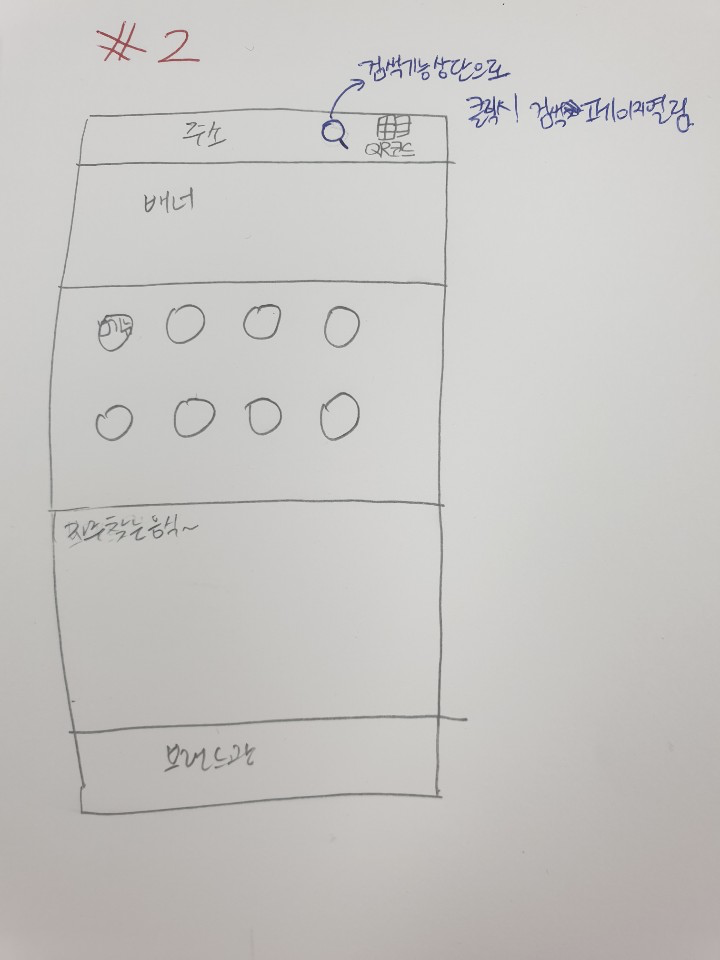 #2
검색기능 상단으로
클릭시 검색 페이지열림
주소
QR코드
배너
메뉴
자주찾는음식~
브랜드관